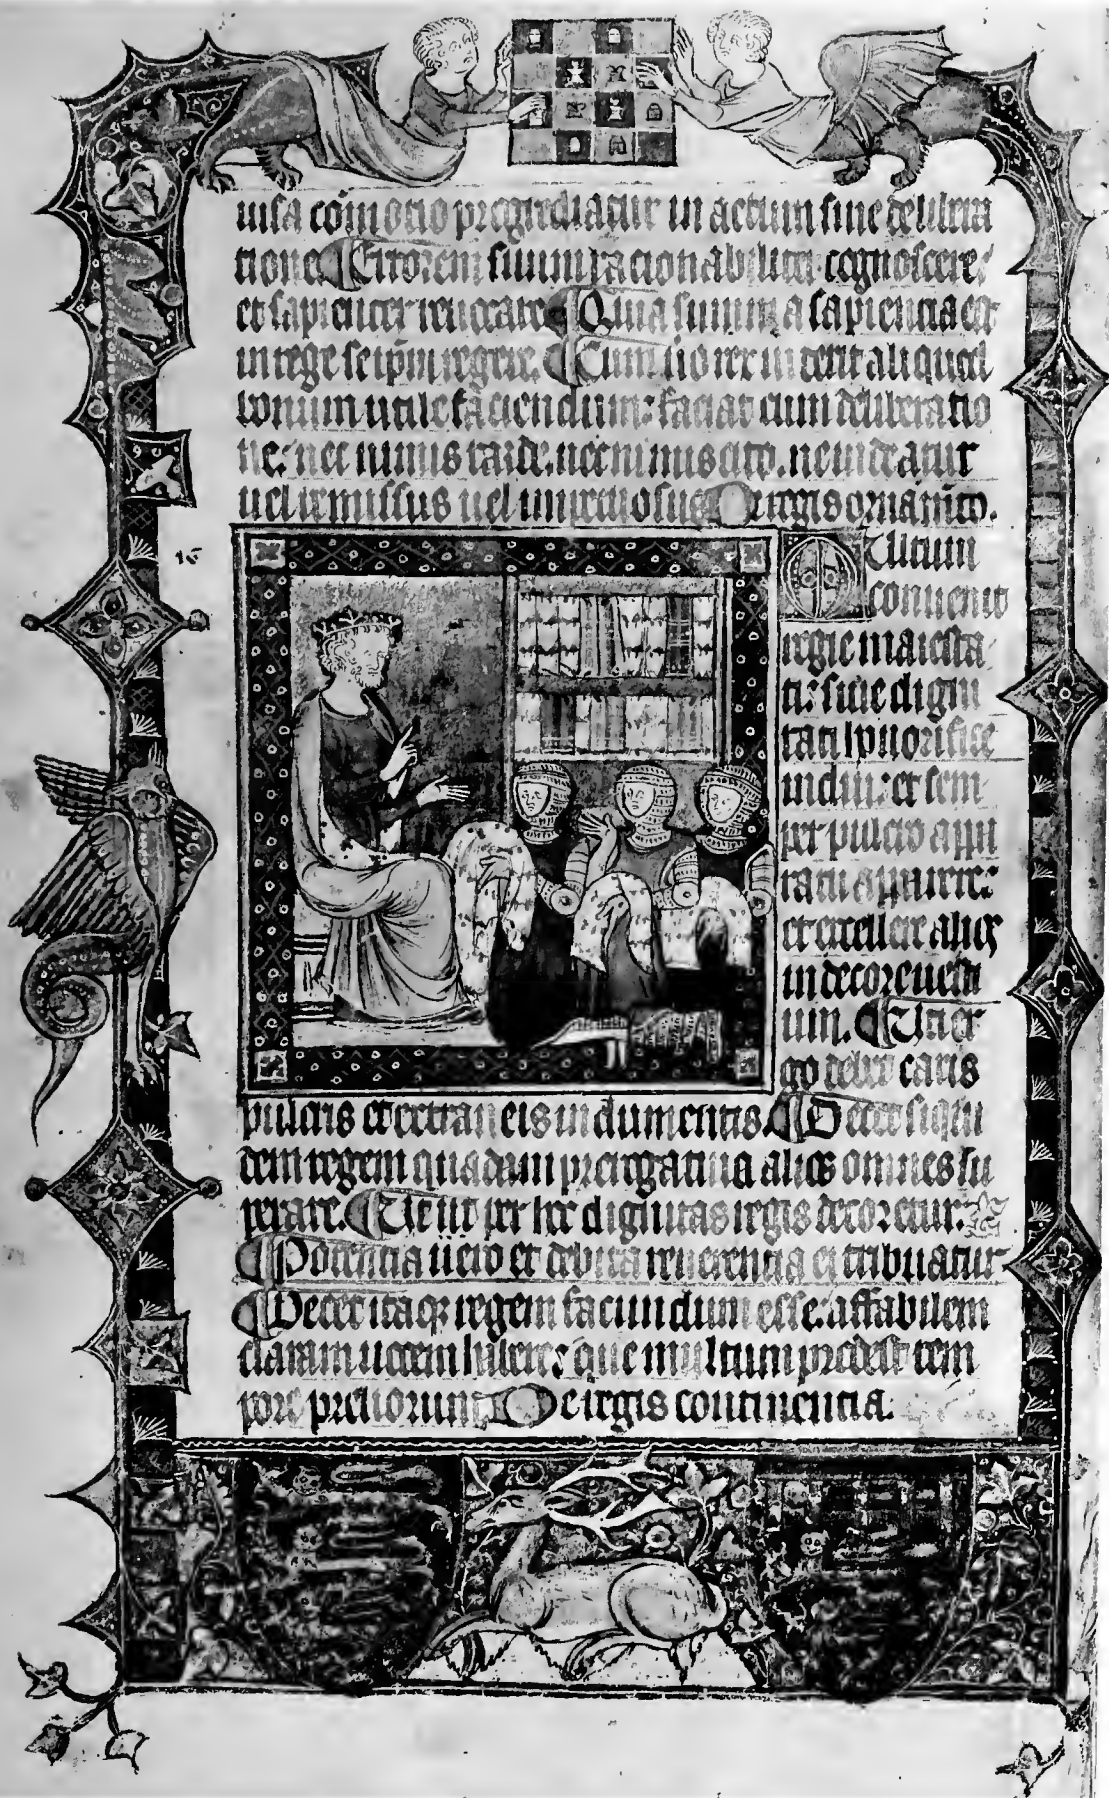 uisa cōmotio progrediatur in actum sine delibera
tione. Errorem suum racionabiliter cognoscere:
et sapienter reuocare. Quia summa sapiencia est
in rege seipm̄ regere. Cum uo rex uiderit aliquod
bonum utile faciendum: faciat cum deliberatio
ne: nec nimis tarde. nec nimis cito. ne uideatur
uel remissus uel impetuosus. De regis ornam̄to.
16
Multum
conuenit
regie maiesta
ti: siue digni
tati honorifice
indui: et sem
per pulcro appa
ratu apparere:
et excellere alios
in decore uesti
um. Uti er
go debet caris
pulcris et extraneis indumentis. Decet siqui
dem regem quadam prerogatiua alios omnes su
perare. Ut per hec dignitas regis decoretur.
Potencia uero et debita reuerencia ei tribuatur
Decet itaq regem facundum esse: affabilem
claram uocem habere: que multum prodest tem
pore preliorum. De regis continencia.